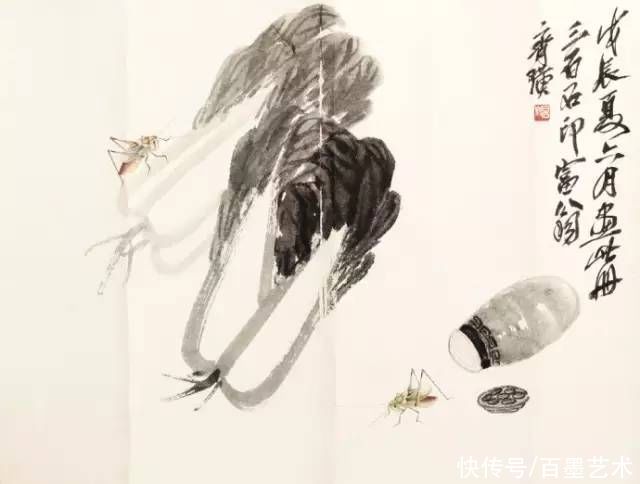 戊辰夏六月画此册
三百石印富翁
齐璜
快传号/百墨艺术